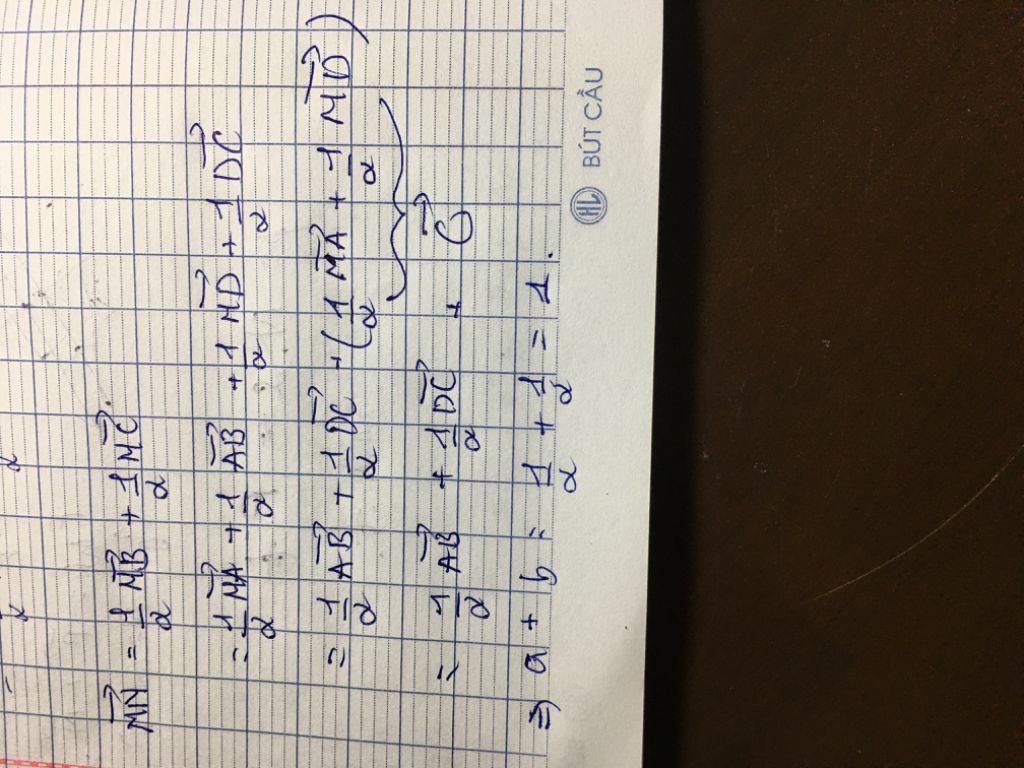 MN = 1/2 MB + 1/2 MC
= 1/2 MA + 1/2 AB + 1/2 MD + 1/2 DC
= 1/2 AB + 1/2 DC + (1/2 MA + 1/2 MD)
= 1/2 AB + 1/2 DC + 0
⇒ a + b = 1/2 + 1/2 = 1.
HL BÚT CẦU